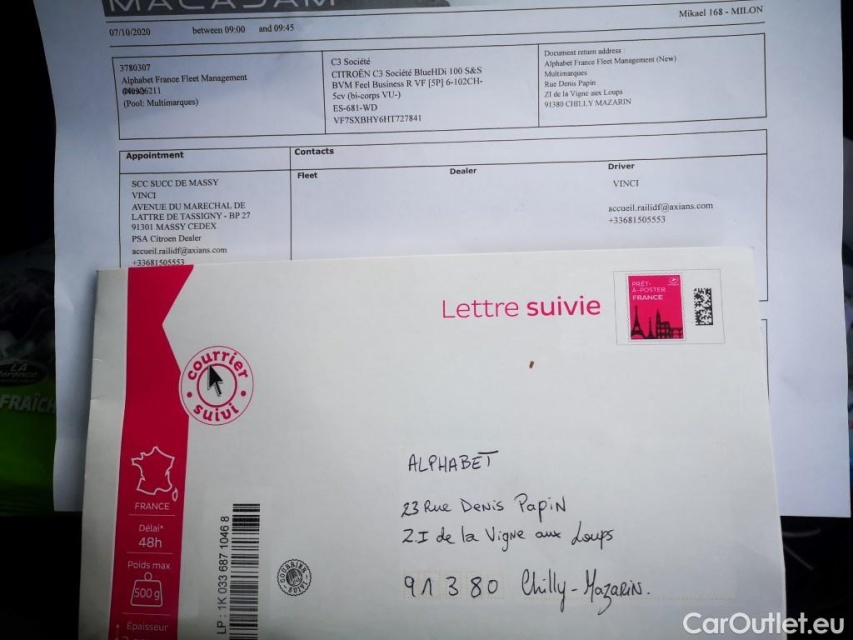 MACADAM
07/10/2020 between 09:00 and 09:45
Mikael 168 - MILON
3780307
Alphabet France Fleet Management
(Pool: Multimarques)
C3 Société
CITROËN C3 Société BlueHDi 100 S&S
BVM Feel Business R VF [5P] 6-102CH-
5cv (bi-corps VU-)
ES-681-WD
VF7SXBHY6HT727841
Document return address :
Alphabet France Fleet Management (New)
Multimarques
Rue Denis Papin
ZI de la Vigne aux Loups
91380 CHILLY MAZARIN
Appointment
SCC SUCC DE MASSY
VINCI
AVENUE DU MARECHAL DE
LATTRE DE TASSIGNY - BP 27
91301 MASSY CEDEX
PSA Citroen Dealer
accueil.railidf@axians.com
+33681505553
Contacts
Fleet
Dealer
Driver
VINCI
accueil.railidf@axians.com
+33681505553
Lettre suivie
PRÊT-
À-POSTER
FRANCE
courrier
suivi
FRANCE
Délai*
48h
Poids max
500 g
Épaisseur
LP : 1K 033 687 1046 8
ALPHABET
23 Rue Denis Papin
ZI de la Vigne aux Loups
91380 Chilly-Mazarin.
LA
FRAÎCH
CarOutlet.eu